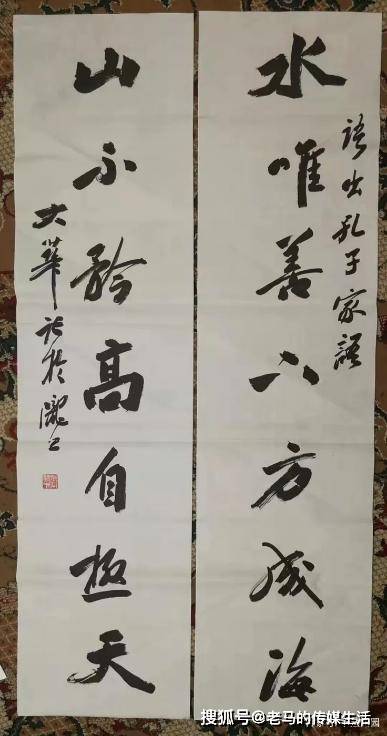 水唯善下方成海
語出孔子家語
山不矜高自極天
大華於隴上
搜狐号@老马的传媒生活